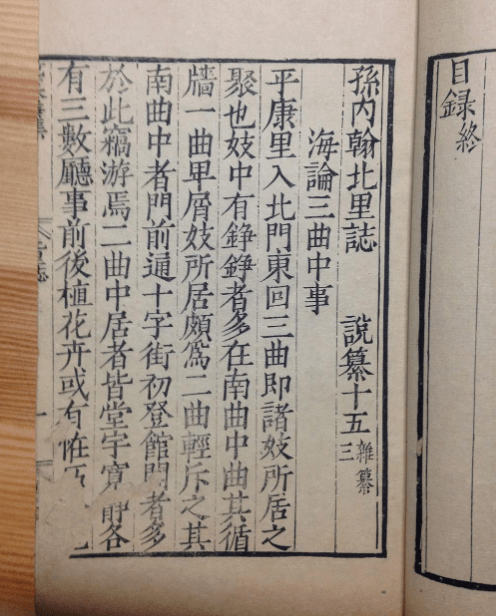 目錄終
孫内翰北里誌 説纂十五 雜纂三
海論三曲中事
平康里入北門東回三曲即諸妓所居之
聚也妓中有錚錚者多在南曲中曲其循
牆一曲卑屑妓所居頗為二曲輕斥之其
南曲中者門前通十字街初登館閣者多
於此竊游焉二曲中居者皆堂宇寬靜各
有三數廳事前後植花卉或有怪